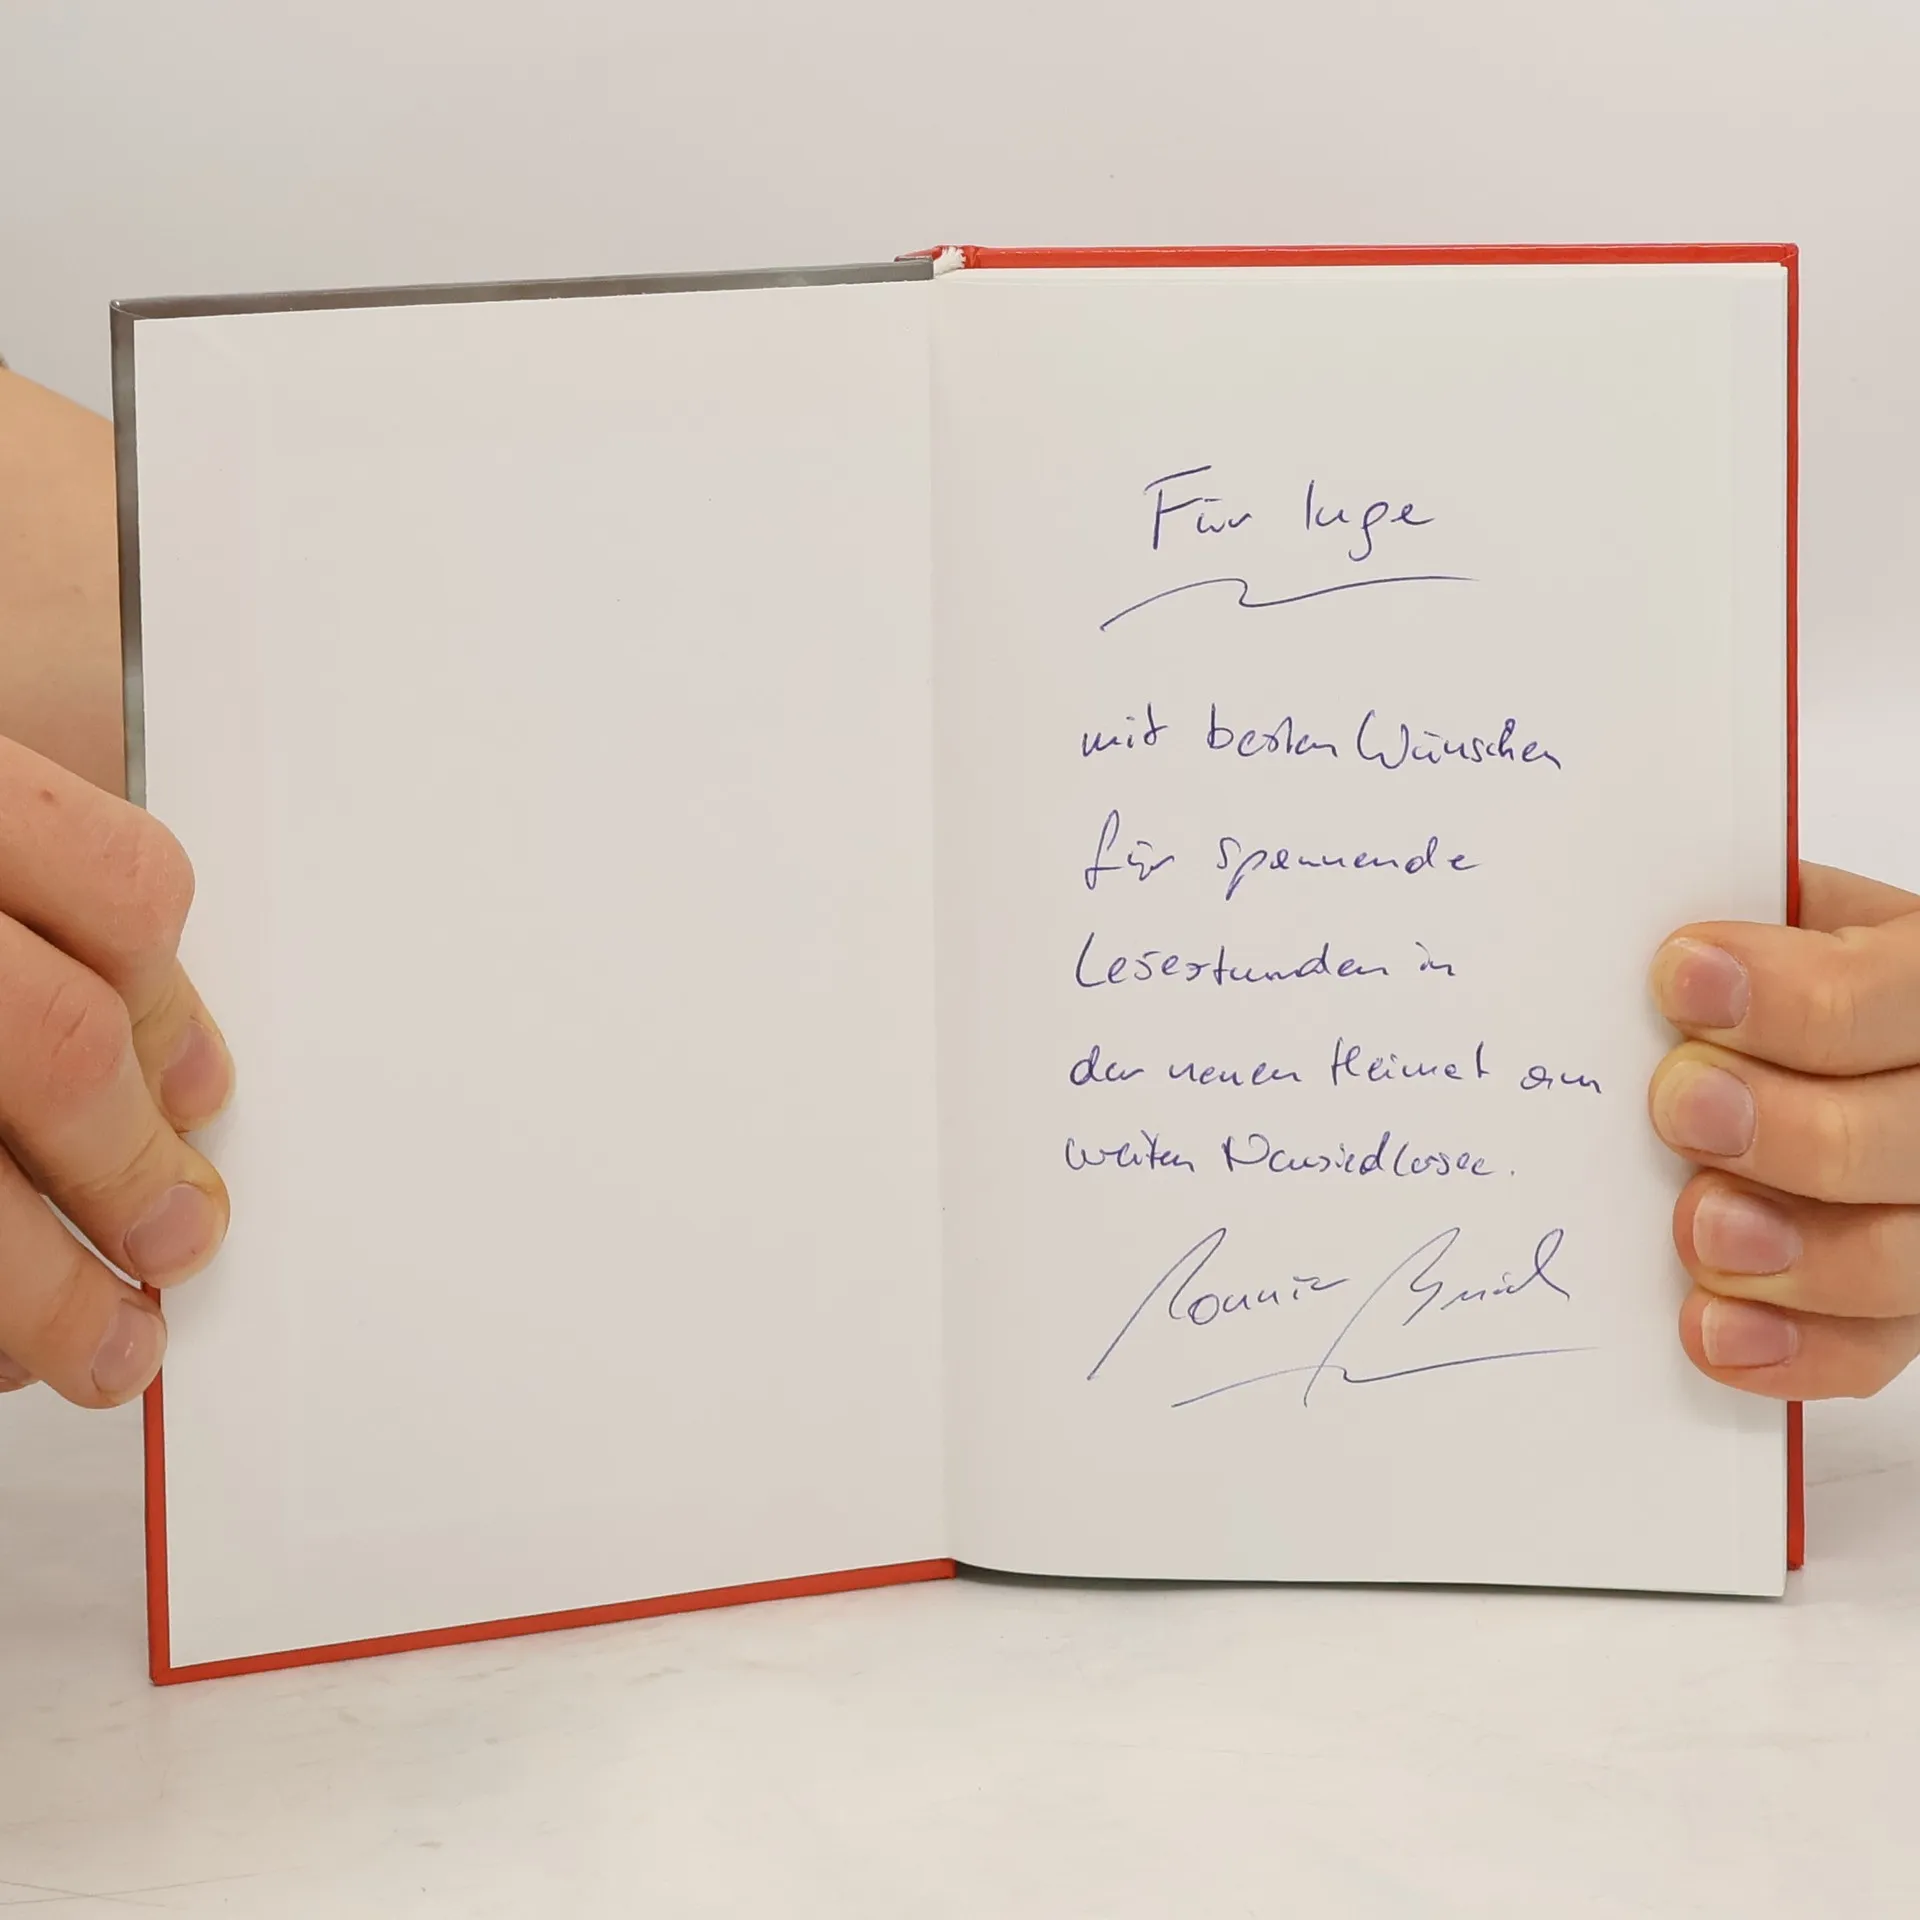 Für Inge
mit besten Wünschen
für spannende
Lesestunden in
der neuen Heimat am
weiten Neusiedlersee.